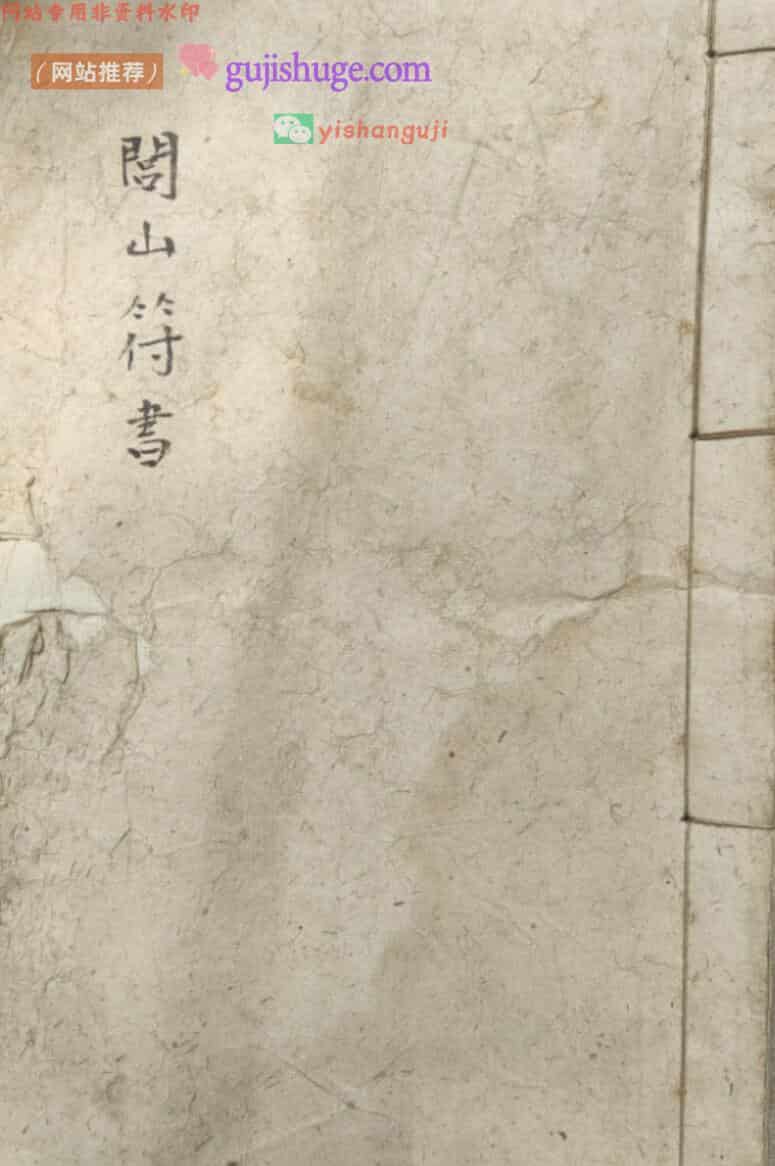 网站专用非资料水印
（网站推荐）
gujishuge.com
yishanguji
閭山符書